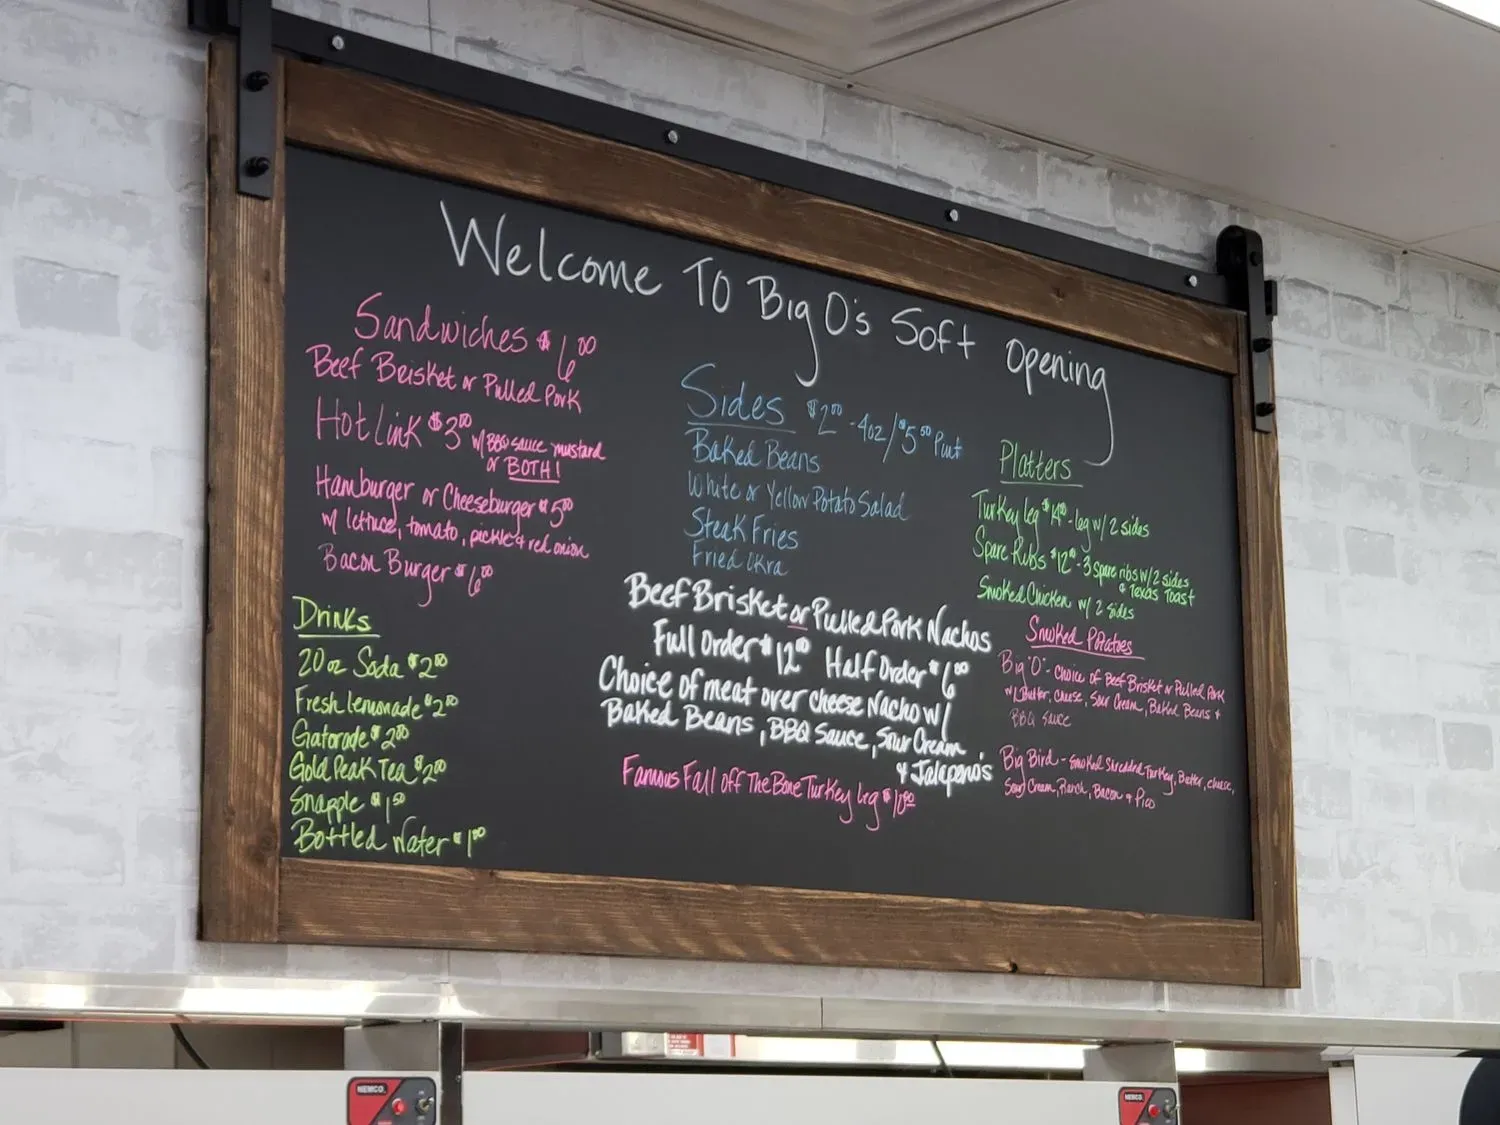 Welcome To Big O's Soft Opening
Sandwiches $6.00
Beef Brisket or Pulled Pork
Hot Link $3.00 w/ BBQ sauce mustard
or BOTH!
Hamburger or Cheeseburger $5.00
w/ lettuce, tomato, pickle & red onion
Bacon Burger $6.00
Drinks
20oz Soda $2.00
Fresh lemonade $2.00
Gatorade $2.00
Gold Peak Tea $2.00
Snapple $1.50
Bottled Water $1.00
Sides $2.00 - 4oz / $5.50 Pint
Baked Beans
White or Yellow Potato Salad
Steak Fries
Fried Okra
Beef Brisket or Pulled Pork Nachos
Full Order $12.00 Half Order $6.00
Choice of meat over cheese Nacho w/
Baked Beans, BBQ Sauce, Sour Cream
& Jalapeno's
Famous Fall off The Bone Turkey leg $10.00
Platters
Turkey leg $14.00 - leg w/ 2 sides
Spare Ribs $12.00 - 3 spare ribs w/ 2 sides
& Texas Toast
Smoked Chicken w/ 2 sides
Smoked Potatoes
Big "O" - Choice of Beef Brisket or Pulled Pork
w/ Butter, cheese, Sour Cream, Baked Beans &
BBQ Sauce
Big Bird - Smoked Shredded Turkey, Butter, cheese,
Sour Cream, Ranch, Bacon & Pico
NEMCO
NEMCO